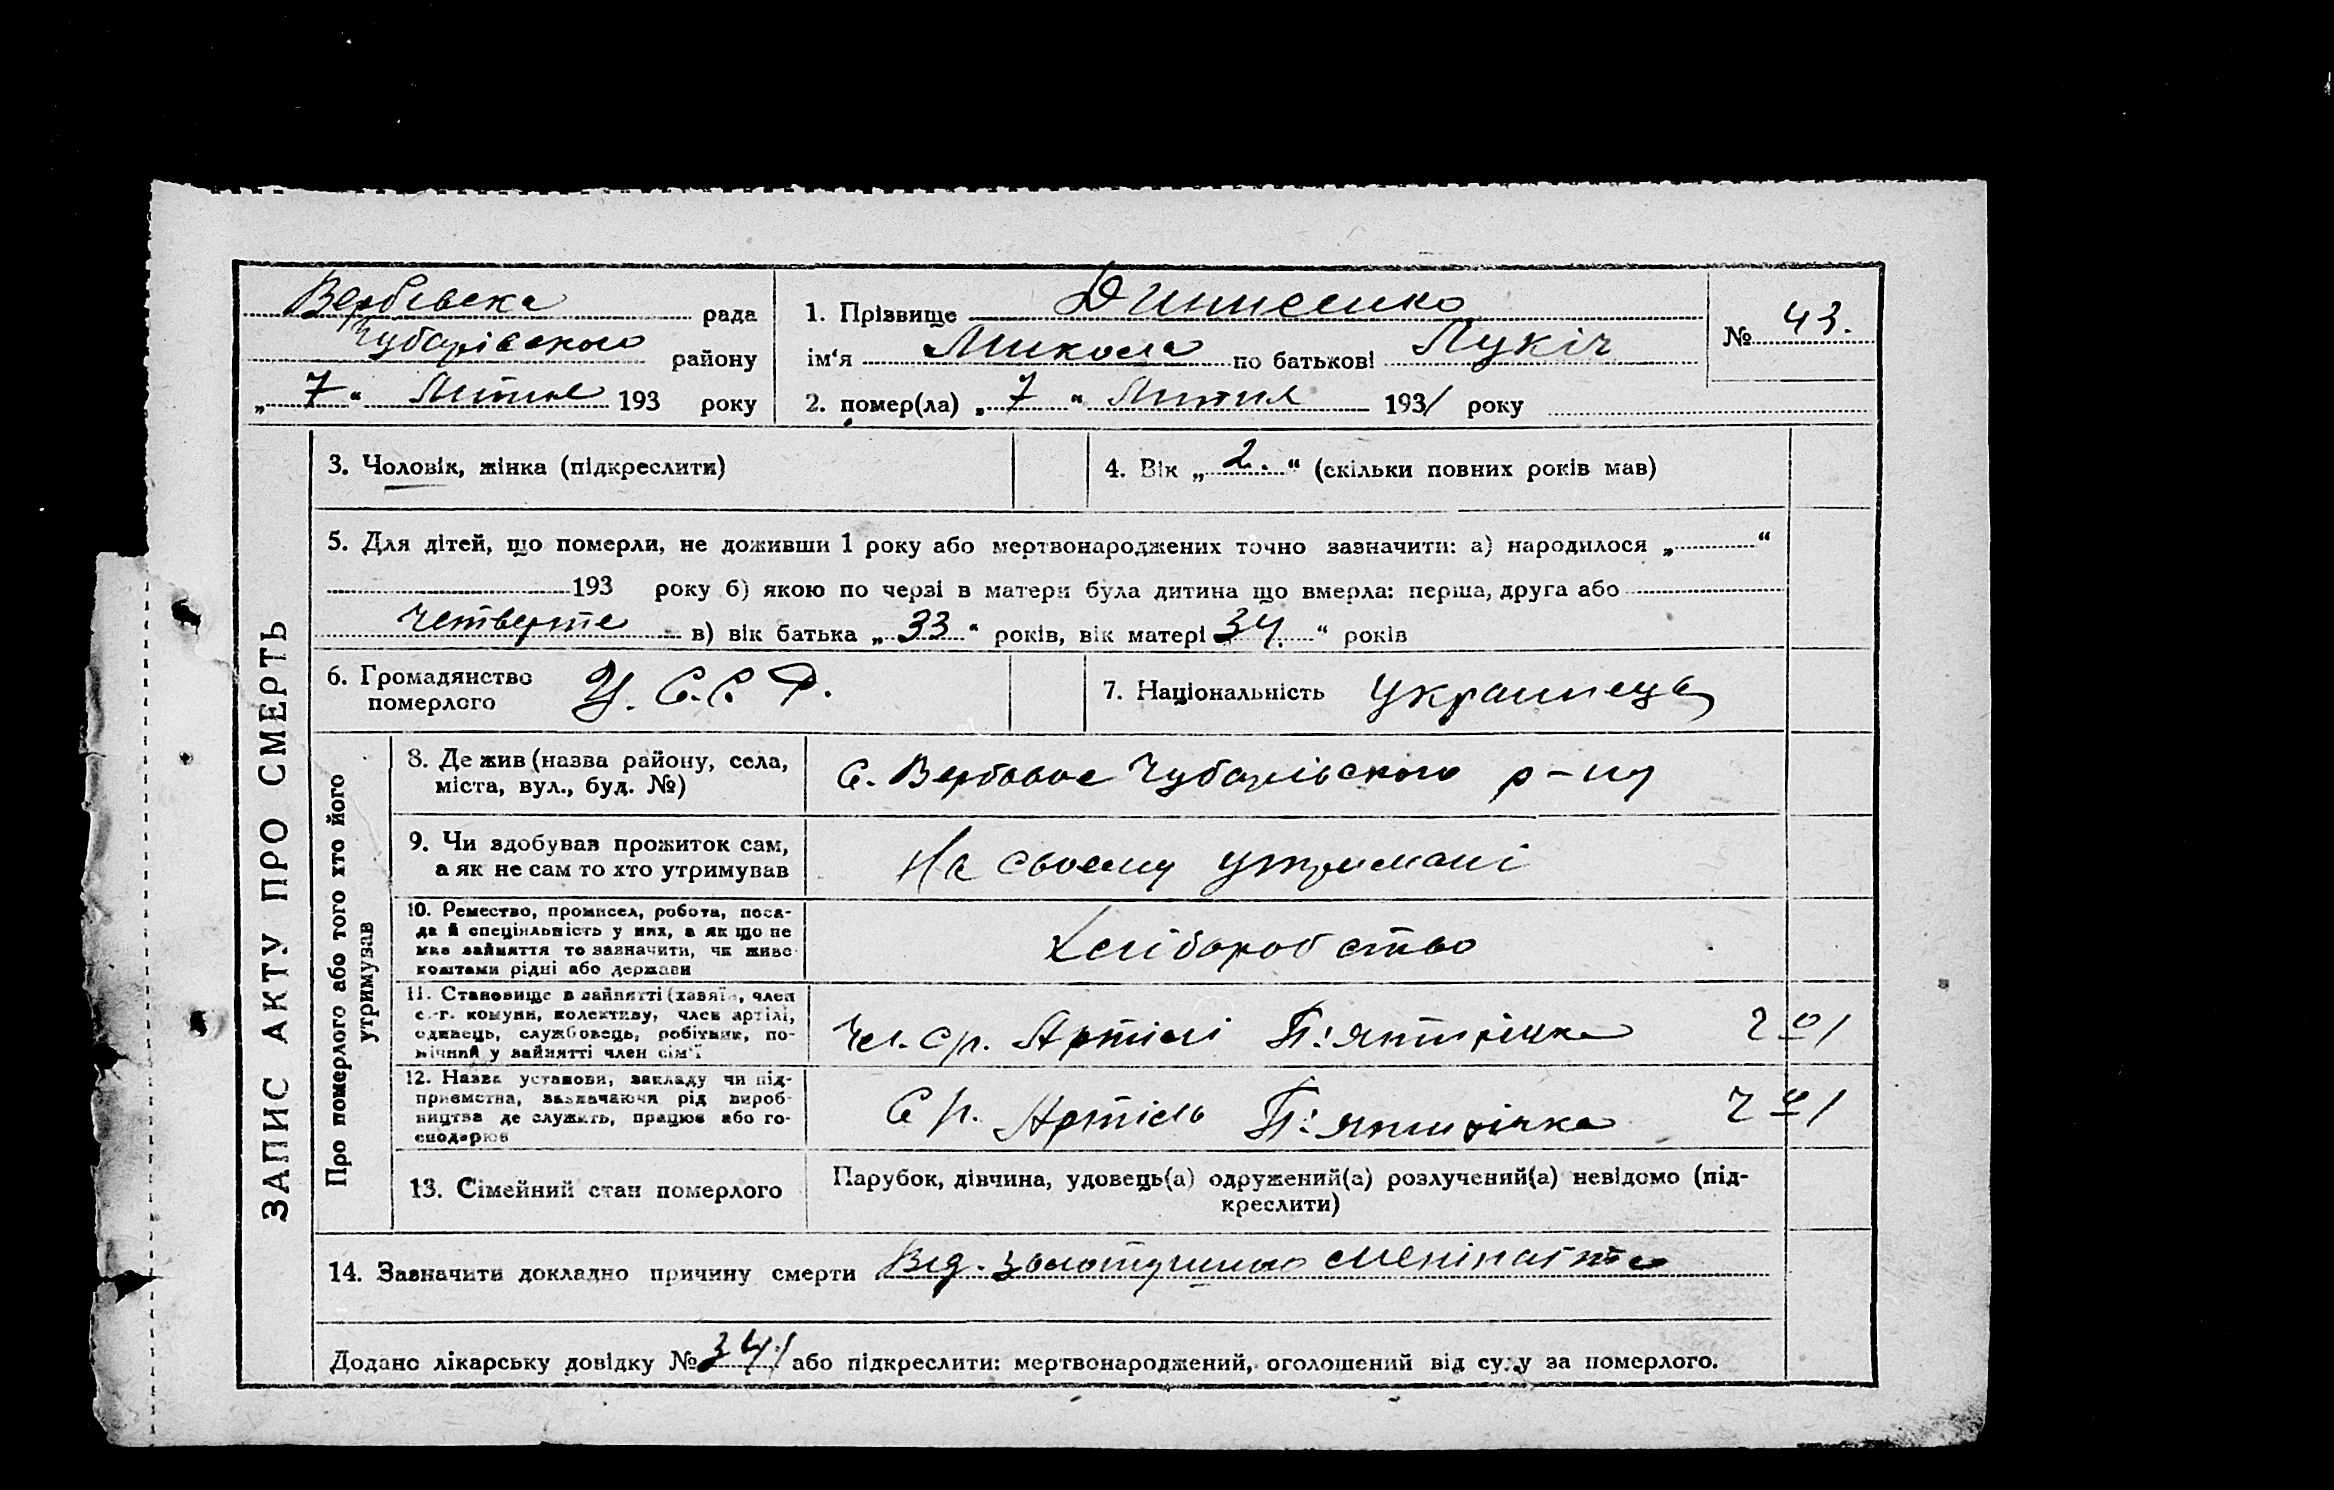 ЗАПИС АКТУ ПРО СМЕРТЬ
Вербівська рада
Чубарівського району
„ 7 “ Липня 193 року
1. Прізвище Динисенко
ім‘я Микола по батькові Лукіч
2. помер(ла) „ 7 “ Липня 1931 року
№ 43.
3. Чоловік, жінка (підкреслити)
4. Вік „ 2. “ (скільки повних років мав)
5. Для дітей, що померли, не доживши 1 року або мертвонароджених точно зазначити: а) народилося „ “
193 року б) якою по черзі в матери була дитина що вмерла: перша, друга або
четверте в) вік батька „ 33 “ років, вік матері 34. “ років
6. Громадянство померлого У. С.С. Р.
7. Національність Украинець
Про померлого або того хто його утримував
8. Де жив (назва району, села,
міста, вул., буд. №)
с. Вербове Чубарівського р-ну
9. Чи здобував прожиток сам,
а як не сам то хто утримував
На своему утримані
10. Ремество, промисел, робота, поса-
да й спеціяльність у них, а як що не
має зайняття то зазначити, чи живе
коштами рідні або держави
Хліборобство
11. Становище в зайнятті (хазяїн, член
с.-г. комуни, колективу, член артілі,
одинець, службовець, робітник, по-
мічний у зайнятті член сім‘ї
Чл. ср. Артілі П'ятирічка
12. Назва установи, закладу чи під-
приємства, зазначаючи рід вироб-
ництва де служить, працює або го-
сподарює
Ср. Артіль П'ятирічка
13. Сімейний стан померлого
Парубок, дівчина, удовець(а) одружений(а) розлучений(а) невідомо (під-
креслити)
14. Зазначити докладно причину смерти Від. золотушного
Додано лікарську довідку № 341 або підкреслити: мертвонароджений, оголошений від суду за померлого.